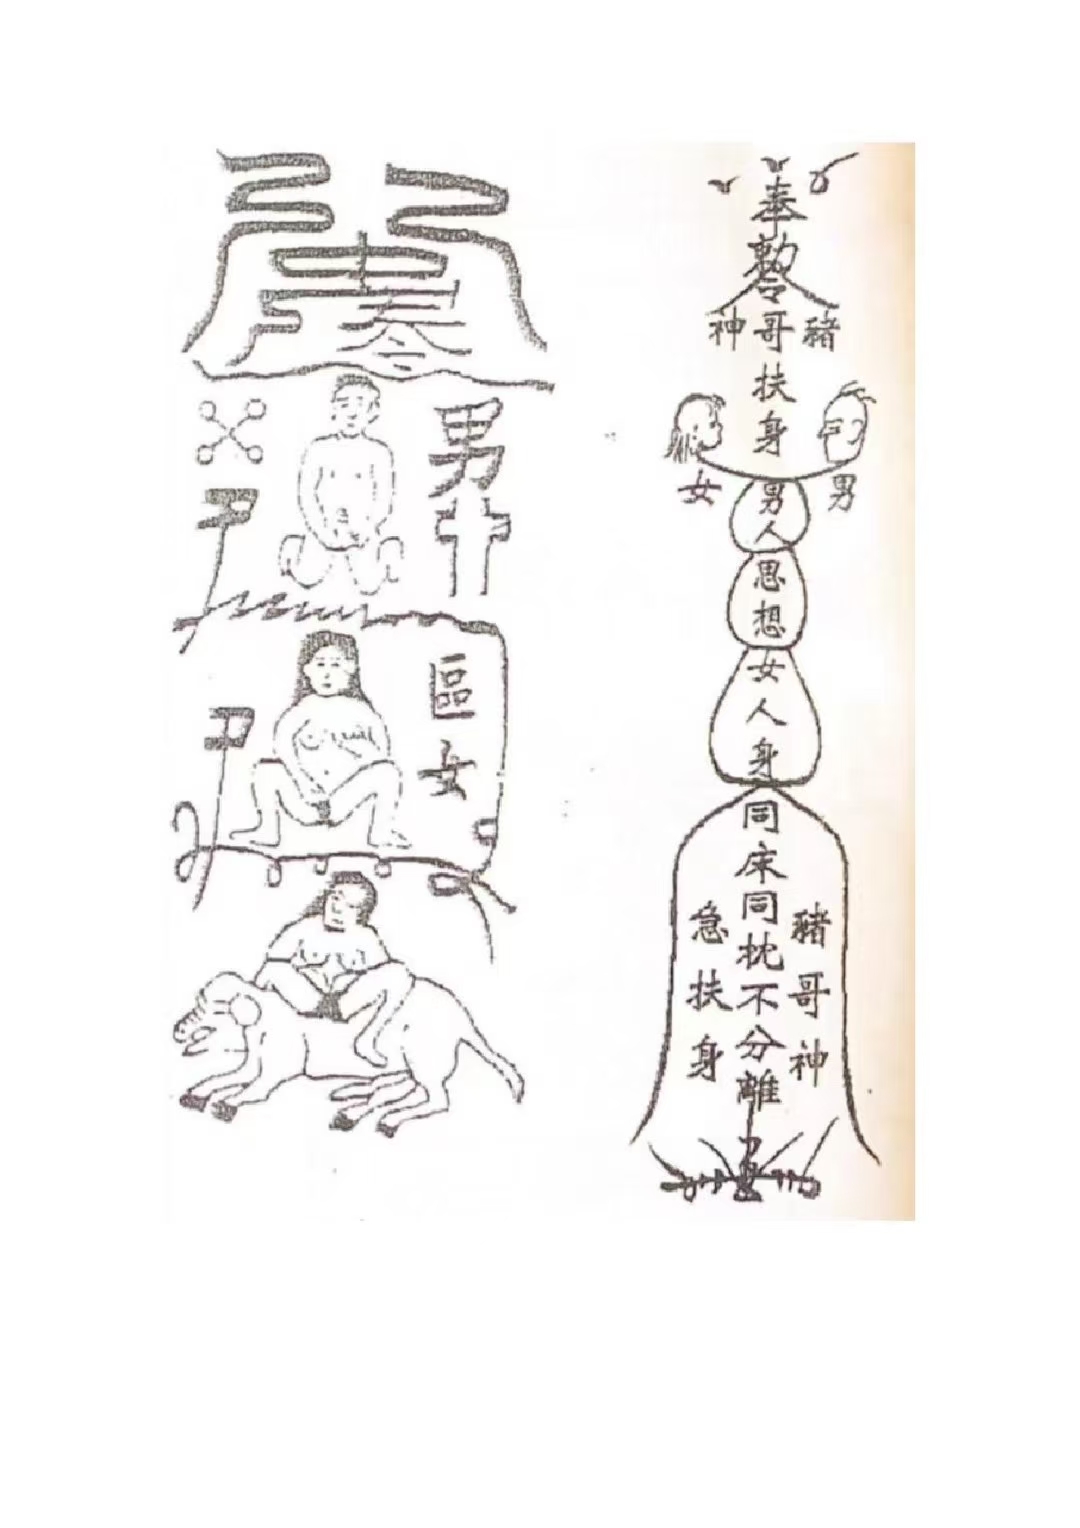 奉
勅令
豬哥神
扶身
女
男
男人
思想
女人身
同床同枕不分離
豬哥神
急扶身
男
區女